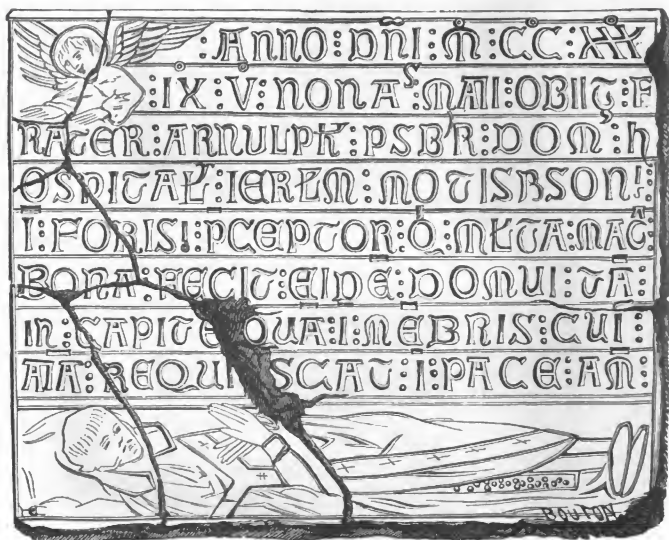 :ANNO:DNI:M:CC:XXX
:IX:V:NONAS:MAII:OBIIT:F
RATER:ARNULPH':PSBR:DOM:H
OSPITAL:IERLM:
I:FORISI:PCEPTOR:Q:MLTA:MAG
BONA:FECIT:EIDE:DOMUI:TA
IN:CAPITE QUA:I:MEBRIS:CUI:
AIA:REQUIESCAT:I:PACE:AM:
BOUTON